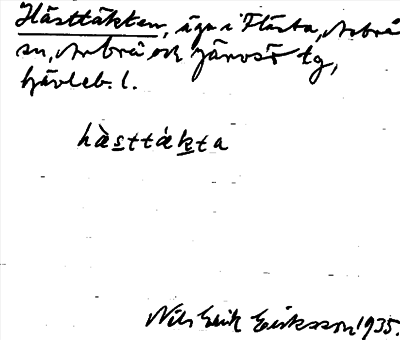 Hästtäkten, äga i Flästa, Arbrå
sn, Arbrå och Järvsö tg,
Gävleb. l.
hàsttákta
Nils Erik Eriksson 1935.